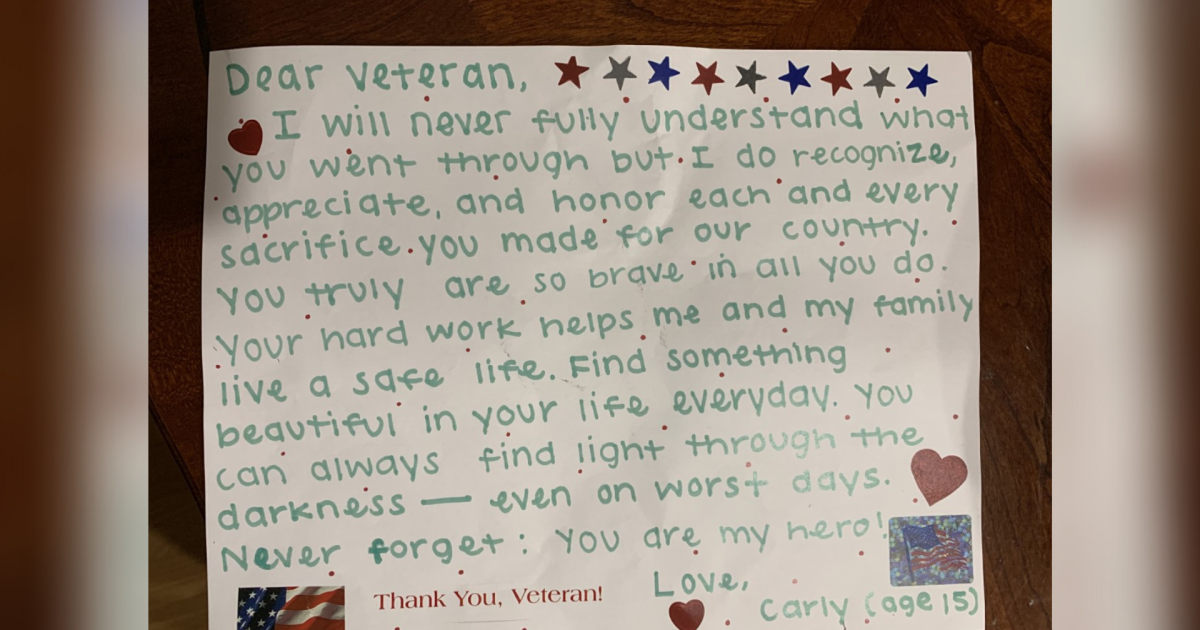 Dear Veteran,
I will never fully understand what
you went through but I do recognize,
appreciate, and honor each and every
sacrifice you made for our country.
You truly are so brave in all you do.
Your hard work helps me and my family
live a safe life. Find something
beautiful in your life everyday. You
can always find light through the
darkness — even on worst days.
Never forget: You are my hero!
Love,
Thank You, Veteran!
Carly (age 15)